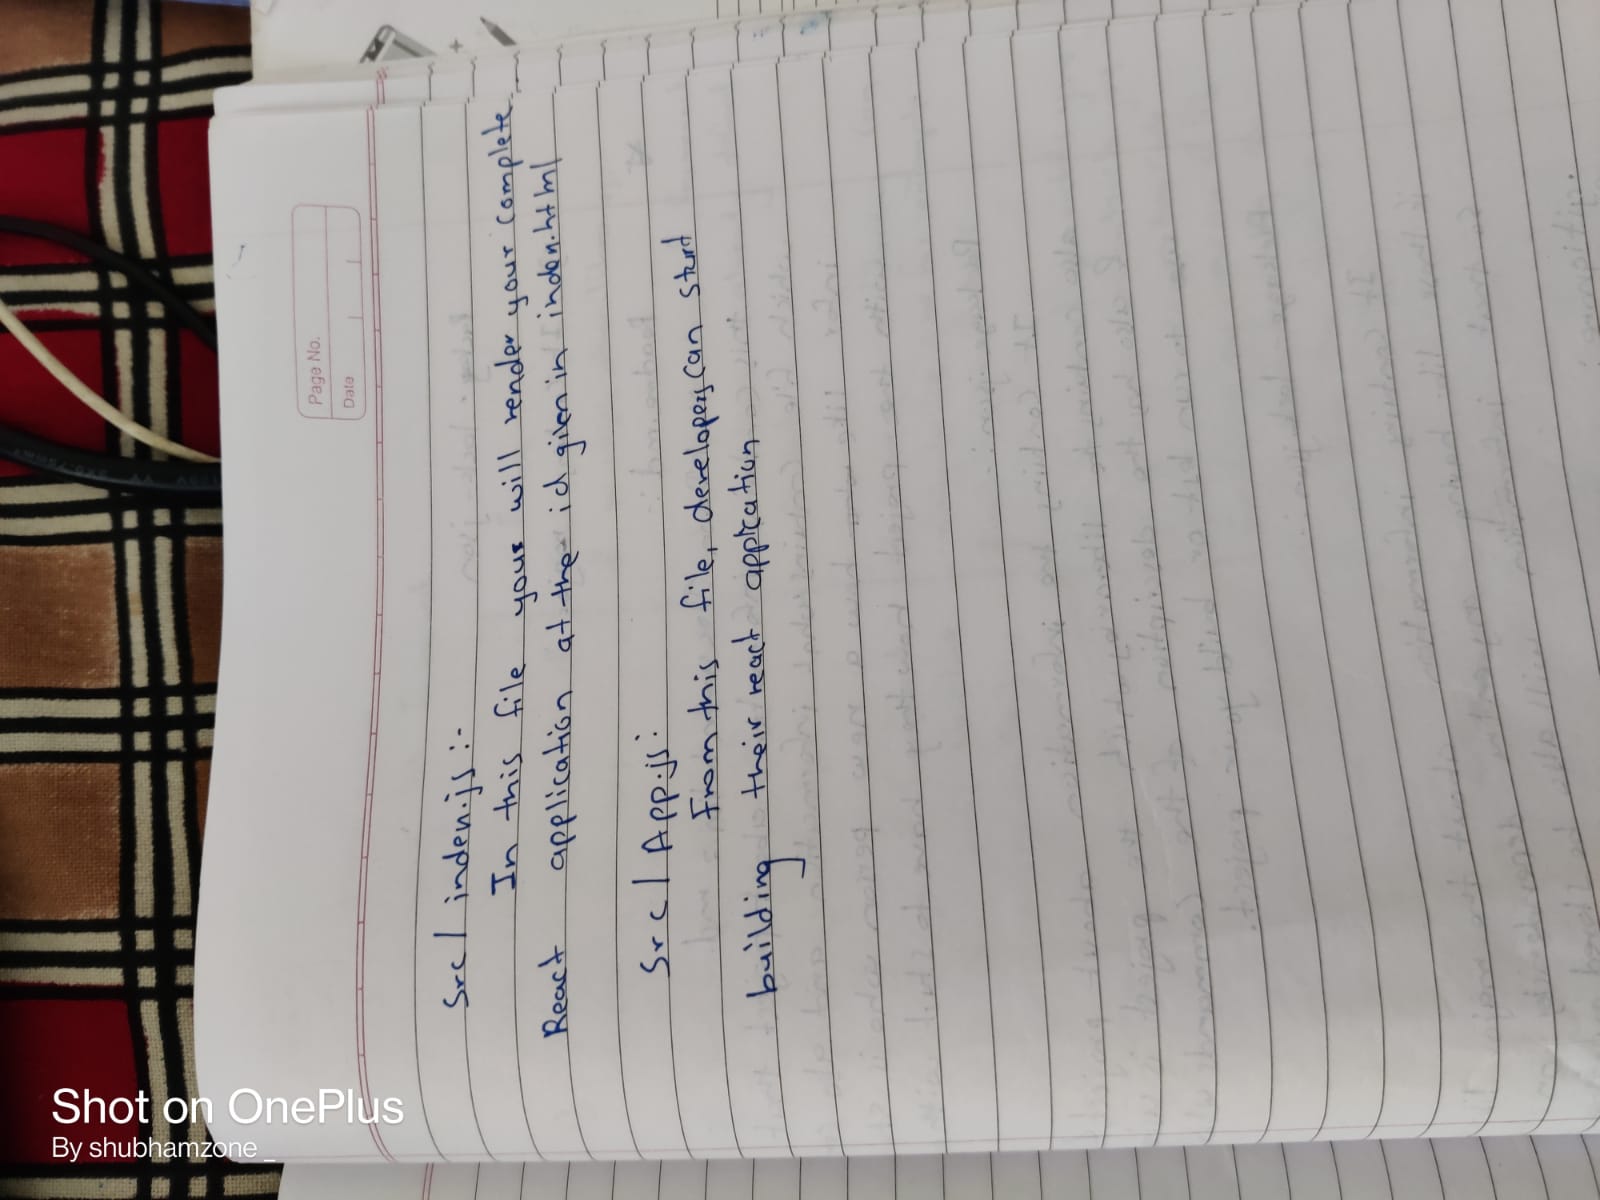 Page No.
Date
Src/inden.js :-
In this file your will render your complete
React application at the id given in inden.html
Src/App.js:
From this file, developers can start
building their react application
Shot on OnePlus
By shubhamzone_